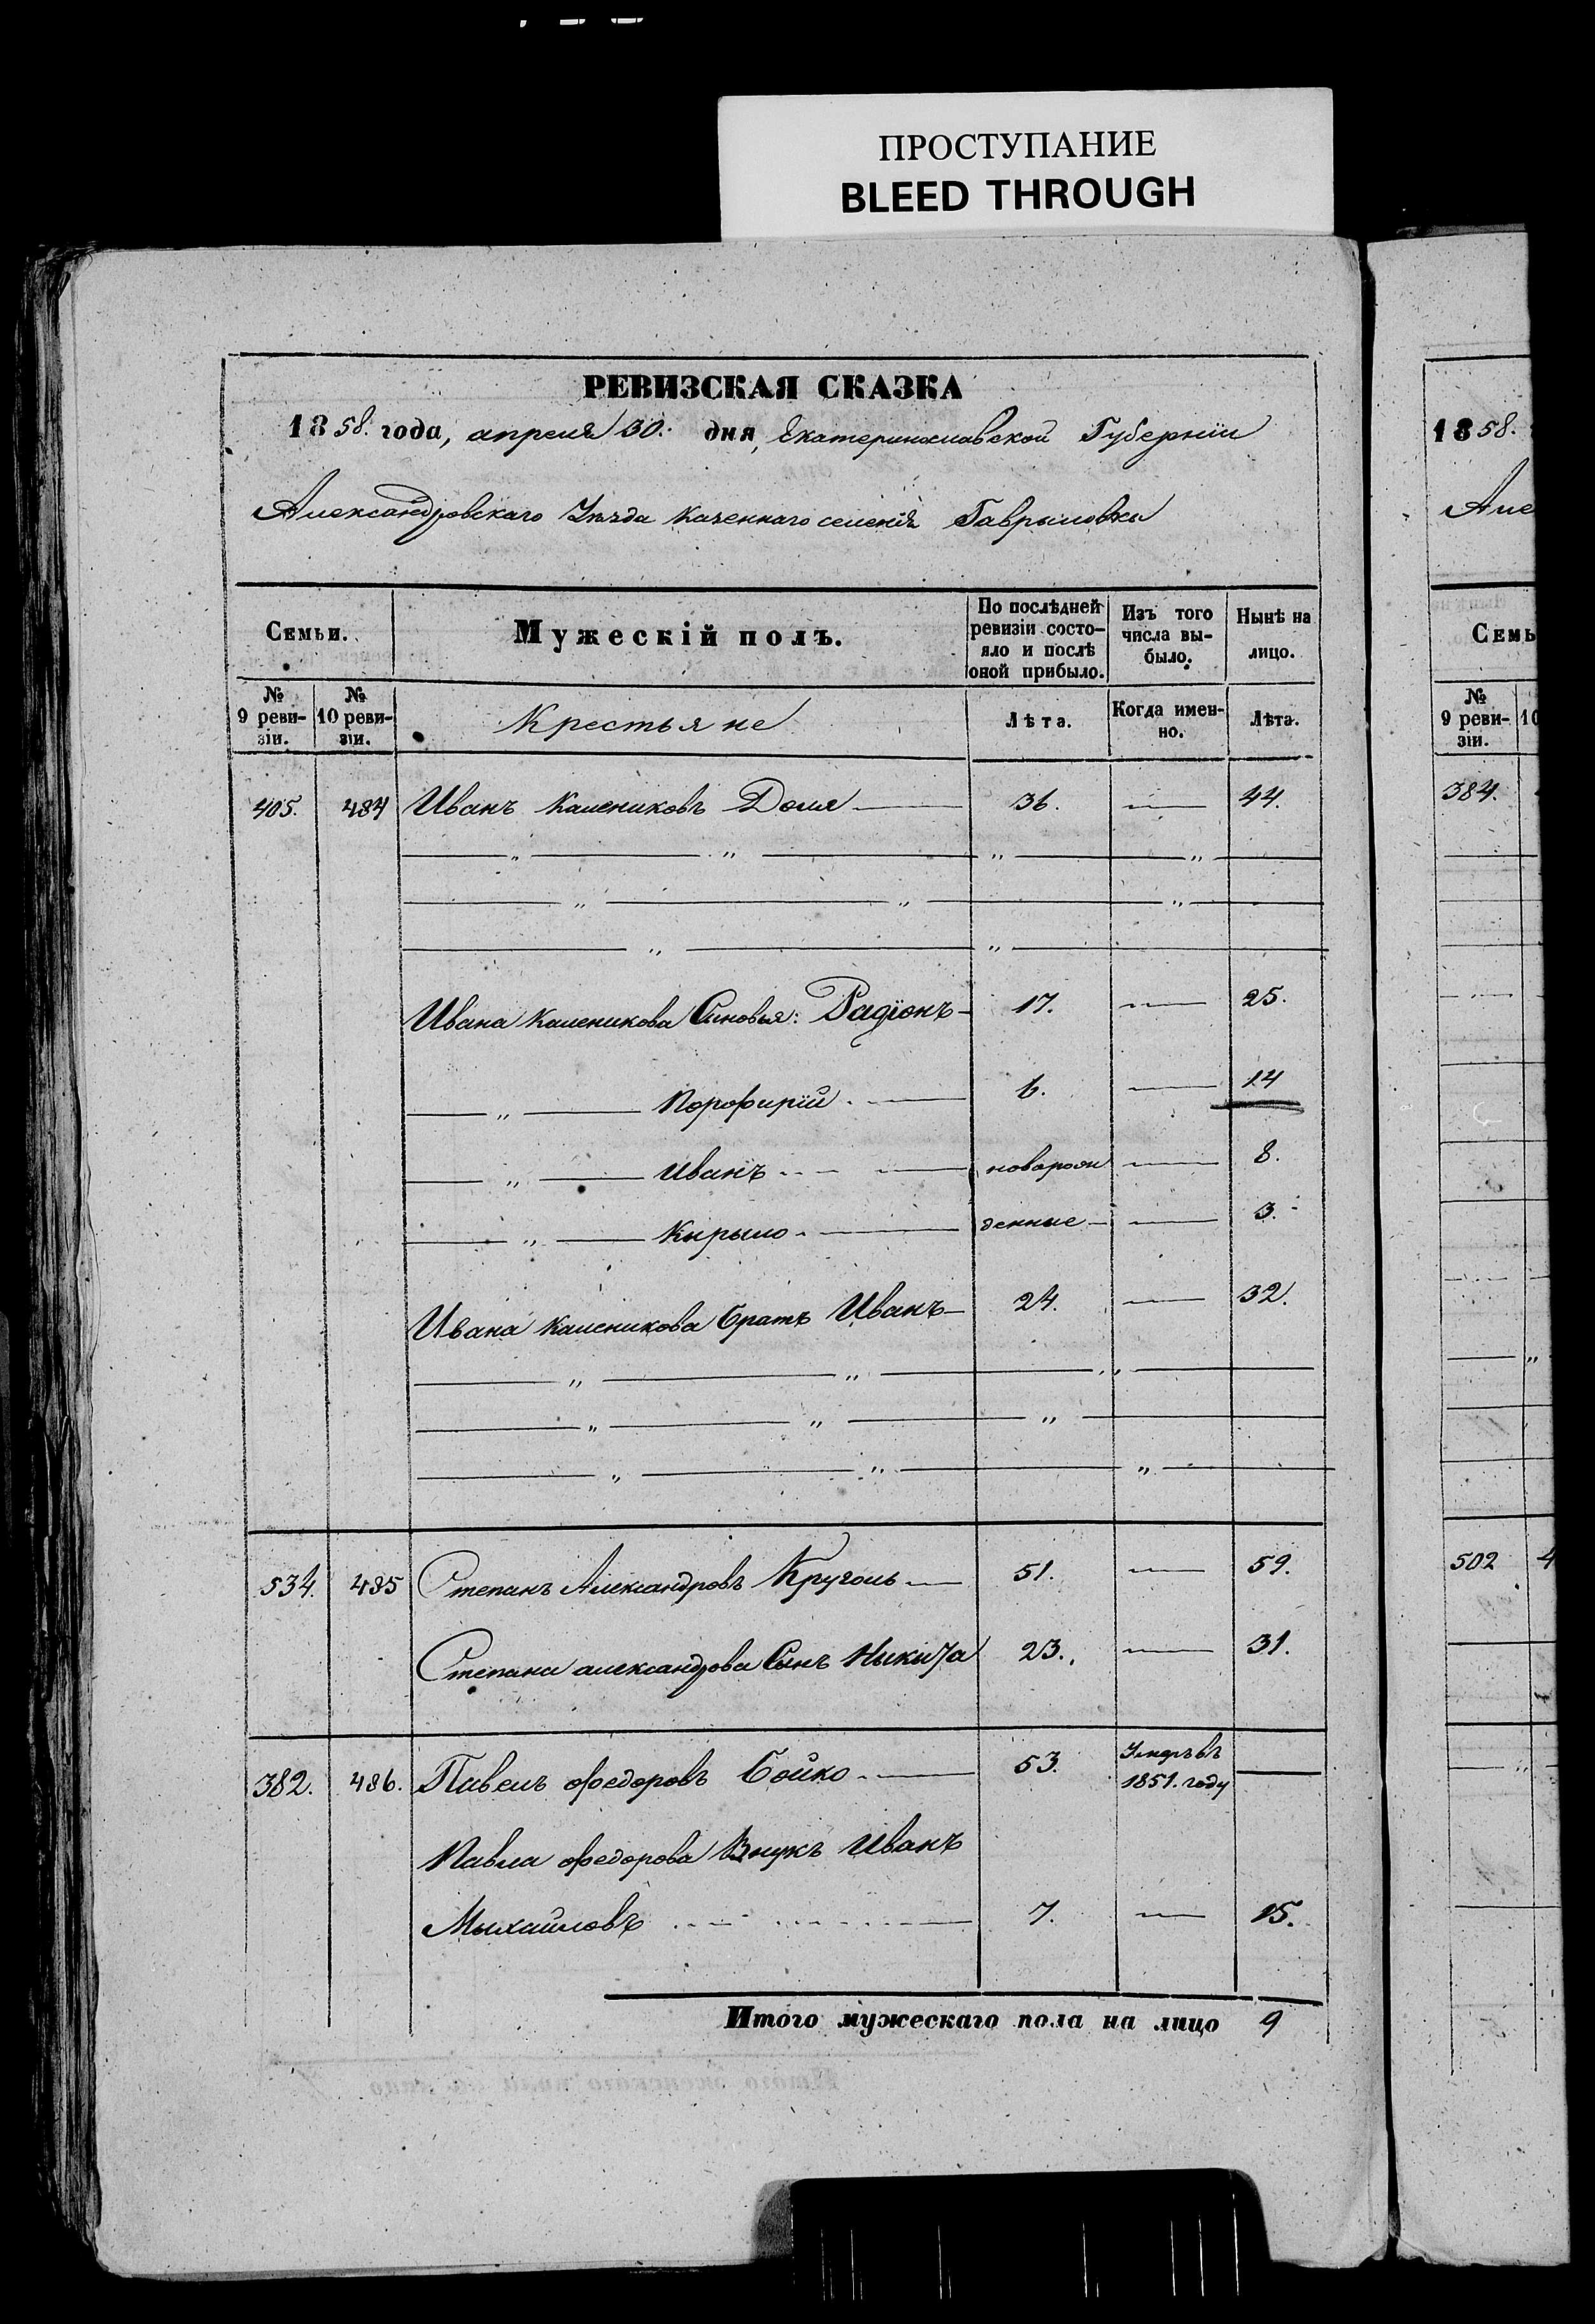 ПРОСТУПАНИЕ
BLEED THROUGH
РЕВИЗСКАЯ СКАЗКА
1858. года, апреля 30. дня, Екатеринославской Губернiи
Александровскаго Уѣзда казеннаго селенiя Гаврыловки
Семьи.
Мужескiй полъ.
По послѣдней ревизiи состо-
яло и послѣ
оной прибыло.
Изъ того
числа вы-
было.
Нынѣ на
лицо.
№
9 реви-
зiи.
№
10 реви-
зiи.
Крестьяне
Лѣта.
Когда имен-
но.
Лѣта.
405. 484 Иванъ Калениковъ Доля — 36. — 44.
Ивана Каленикова Сыновья: Радiонъ — 17. — 25.
— „ — Порофирiй. — 6. — 14
— „ — Иванъ — новарож — 8.
— „ — Кырыло — денные — 3.
Ивана Каленикова братъ Иванъ — 24. — 32.
534. 485 Степанъ Александровъ Круголь — 51. — 59.
Степана александрова Сынъ Ныкита 23. — 31.
382. 486. Павелъ Федоровъ Бойко — 53. Умеръ въ 1851. году —
Павла Федорова Внукъ Иванъ
Мыхайловъ — 7. — 15.
Итого мужескаго пола на лицо 9
1858.
Але
Семь
№
9 реви-
зiи.
10
384.
502 4